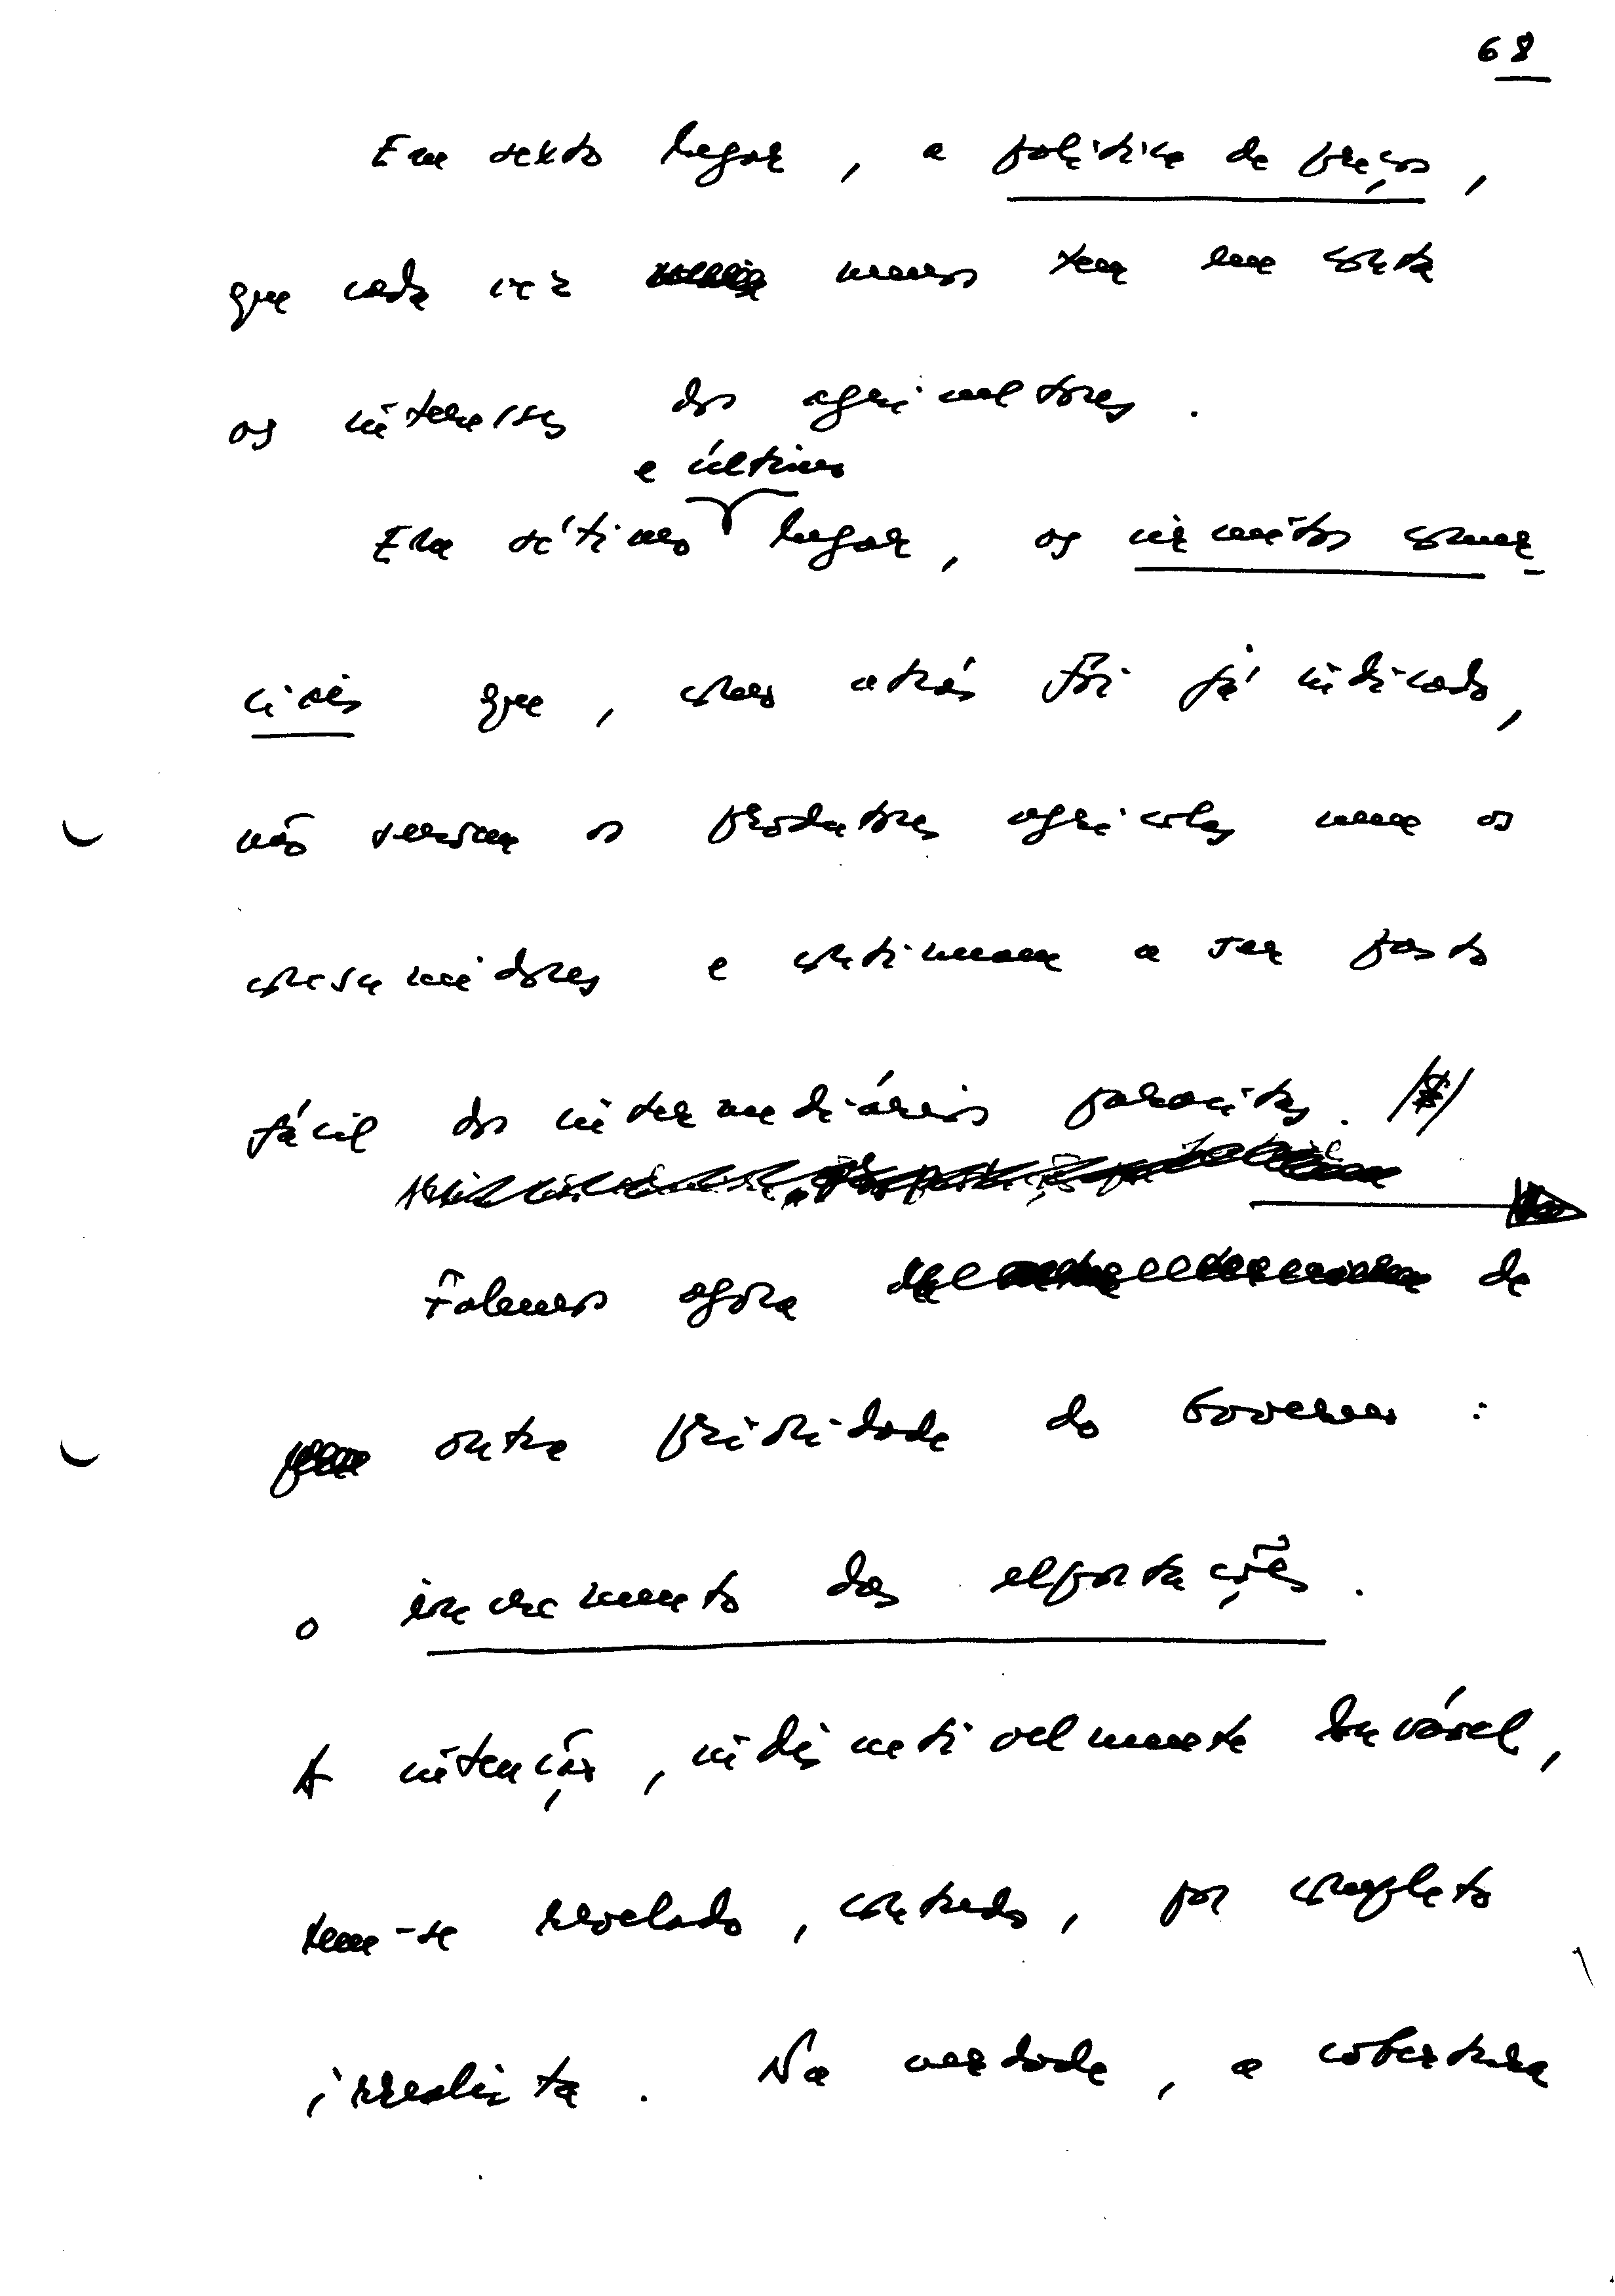 68
Em sexto lugar, a política de preços,
que cada vez menos tem em conta
os interesses dos agricultores.
e último
Em sétimo lugar, os circuitos comer-
ciais que, como atrás foi já indicado,
não servem os produtores agrícolas nem os
consumidores e continuam a ser pasto
fácil dos intermediários parasitas. /*/
Falemos agora de
outra prioridade do Governo:
o incremento das exportações.
A intenção, indiscutivelmente louvável,
tem-se revelado, contudo, por completo
irrealista. Na verdade, a cobertura